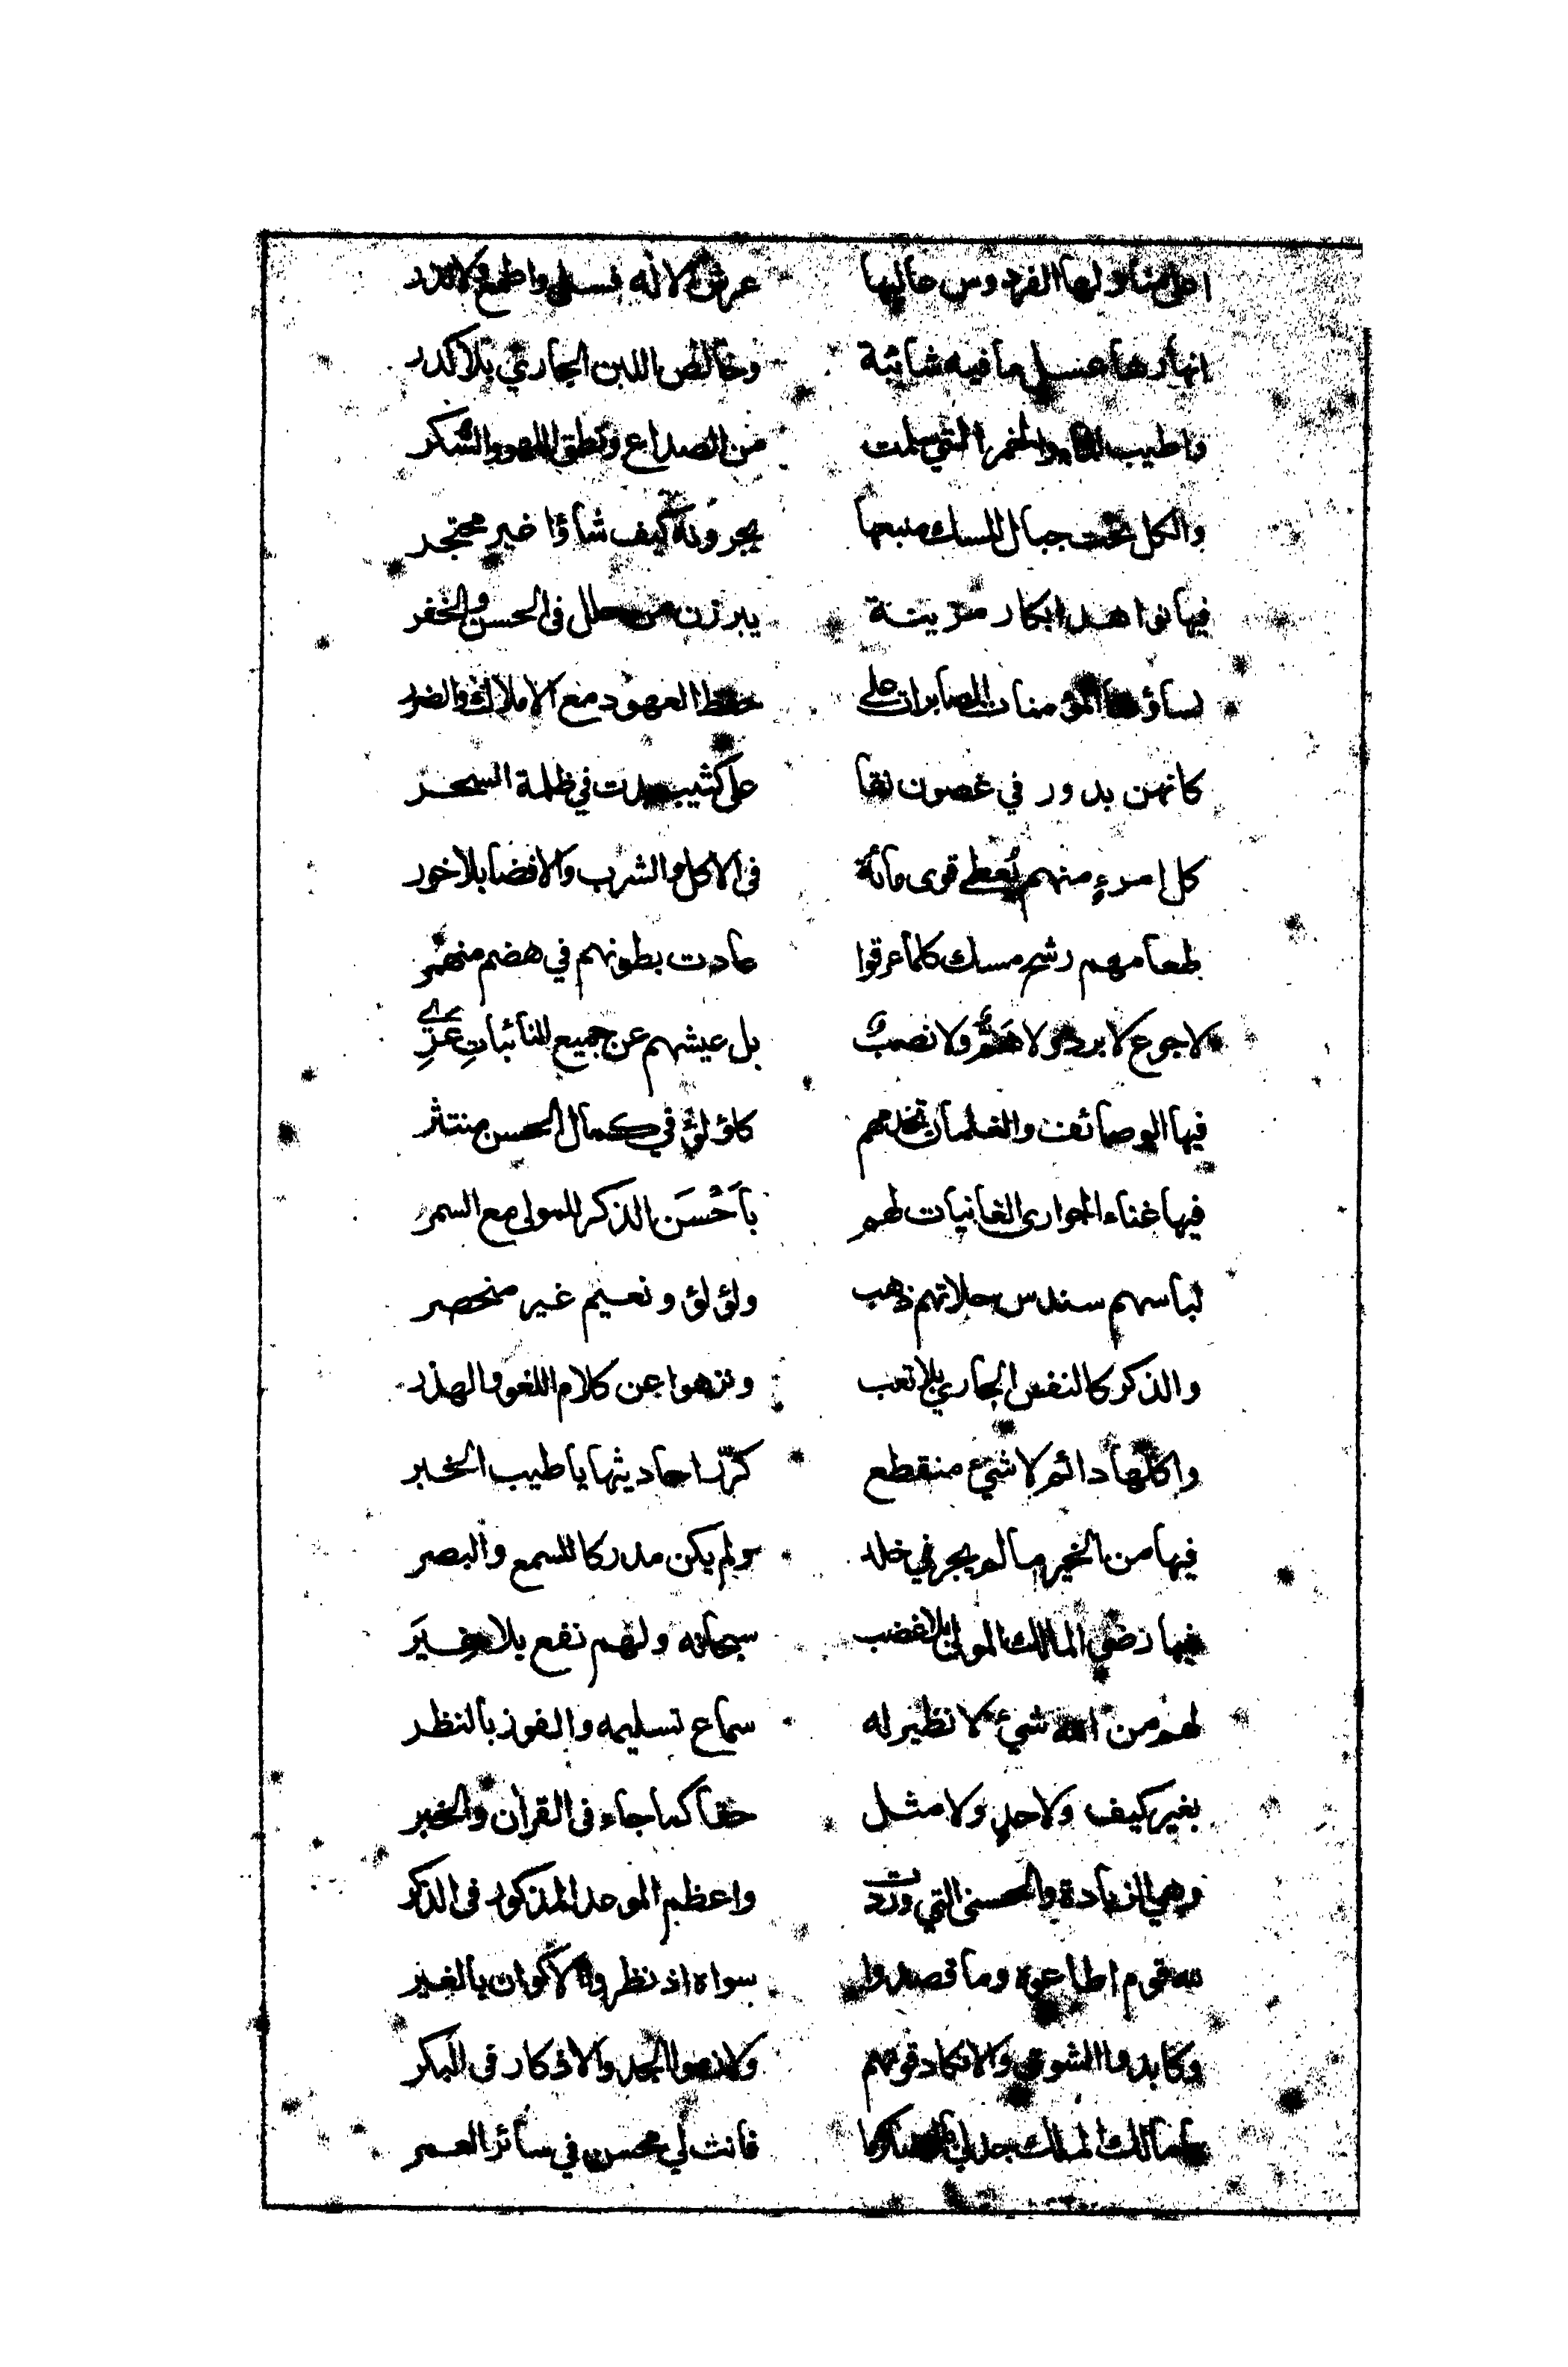 اعلى منازلها الفردوس عاليها عرش الاله فسل واطمع ولا تذر
انهارها عسل ما فيه شائبة وخالص اللبن الجاري بلا كدر
واطيب الماء والخمر التي سلمت من الصداع ونطق اللهو والسكر
والكل تحت جبال المسك منبعها يجرونه كيف شاؤا غير محتجر
فيها نواهد ابكار مزينة يبرزن من حلل في الحسن والخفر
نساؤها المؤمنات الصابرات على حفظ العهود مع الاملاق والضرر
كانهن بدور في غصون نقا على كثيب بدت في ظلمة السحر
كل إمرءٍ منهم يُعطى قوى مائة في الاكل والشرب والافضا بلا خور
طعامهم رشح مسك كلما عرقوا عادت بطونهم في هضم منضمر
لا جوع لا برد لا هَمٌّ ولا نصبٌ بل عيشهم عن جميع النائباتِ عَرِي
فيها الوصائف والغلمان تخدمهم كلؤلؤ في كمال الحسن منتثر
فيها غناء الجواري الغانيات لهم بأَحْسَن الذكر للمولى مع السمر
لباسهم سندس حلاتهم ذهب ولؤلؤ ونعيم غير منحصر
والذكر كالنفس الجاري بلا تعب ونزهوا عن كلام اللغو والهذر
واكلها دائم لا شيء منقطع كرّر احاديثها يا طيب الخبر
فيها من الخير ما لم يجر في خلد ولم يكن مدركا للسمع والبصر
فيها رضى المالك المولى بلا غضب سبحانه ولهم نفع بلا غِيَر
لهم من الله شيء لا نظير له سماع تسليمه والفوز بالنظر
بغير كيف ولا حد ولا مثل حقا كما جاء في القران والخبر
وهي الزيادة والحسنى التي وردت واعظم الموعد المذكور في الذكر
لله قوم اطاعوه وما قصدوا سواه اذ نظروا الاكوان بالغير
وكابدوا الشوق والانكاد قوتهم ولازموا الجد والاذكار في البكر
يا مالك الملك جد لي فانت لي محسن في سائر العمر